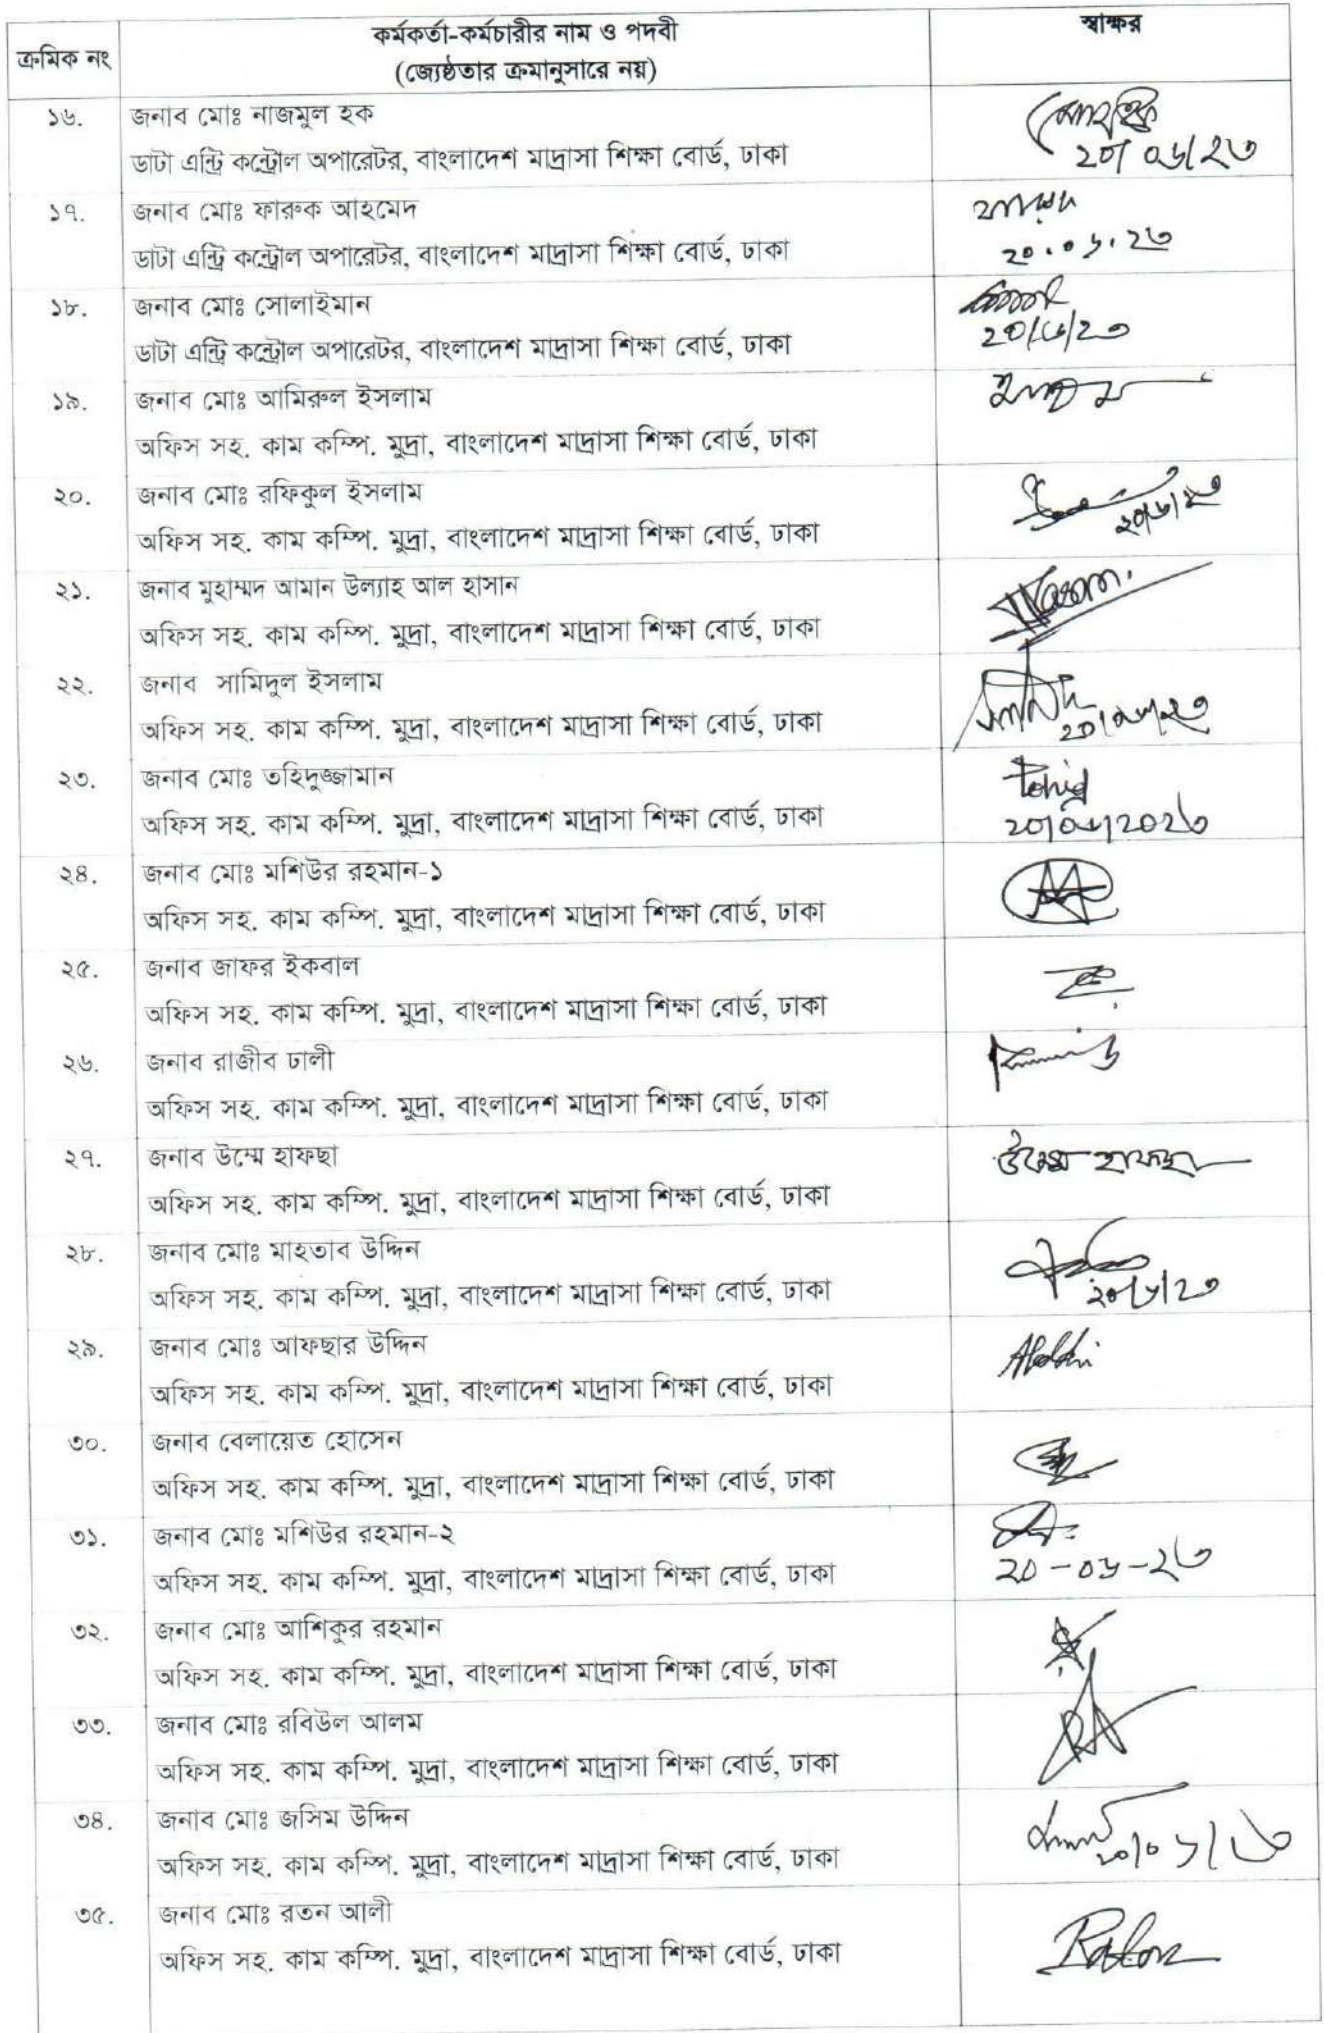 ক্রমিক নং
কর্মকর্তা-কর্মচারীর নাম ও পদবী
(জ্যেষ্ঠতার ক্রমানুসারে নয়)
স্বাক্ষর
১৬.
জনাব মোঃ নাজমুল হক
ডাটা এন্ট্রি কন্ট্রোল অপারেটর, বাংলাদেশ মাদ্রাসা শিক্ষা বোর্ড, ঢাকা
২০/০৬/২৩
১৭.
জনাব মোঃ ফারুক আহমেদ
ডাটা এন্ট্রি কন্ট্রোল অপারেটর, বাংলাদেশ মাদ্রাসা শিক্ষা বোর্ড, ঢাকা
২০.০৬.২৩
১৮.
জনাব মোঃ সোলাইমান
ডাটা এন্ট্রি কন্ট্রোল অপারেটর, বাংলাদেশ মাদ্রাসা শিক্ষা বোর্ড, ঢাকা
২০/৬/২৩
১৯.
জনাব মোঃ আমিরুল ইসলাম
অফিস সহ. কাম কম্পি. মুদ্রা, বাংলাদেশ মাদ্রাসা শিক্ষা বোর্ড, ঢাকা
২০.
জনাব মোঃ রফিকুল ইসলাম
অফিস সহ. কাম কম্পি. মুদ্রা, বাংলাদেশ মাদ্রাসা শিক্ষা বোর্ড, ঢাকা
২০/৬/২৩
২১.
জনাব মুহাম্মদ আমান উল্যাহ আল হাসান
অফিস সহ. কাম কম্পি. মুদ্রা, বাংলাদেশ মাদ্রাসা শিক্ষা বোর্ড, ঢাকা
২২.
জনাব সামিদুল ইসলাম
অফিস সহ. কাম কম্পি. মুদ্রা, বাংলাদেশ মাদ্রাসা শিক্ষা বোর্ড, ঢাকা
২০/০৬/২৩
২৩.
জনাব মোঃ তহিদুজ্জামান
অফিস সহ. কাম কম্পি. মুদ্রা, বাংলাদেশ মাদ্রাসা শিক্ষা বোর্ড, ঢাকা
Tohid
২০/০৬/২০২৩
২৪.
জনাব মোঃ মশিউর রহমান-১
অফিস সহ. কাম কম্পি. মুদ্রা, বাংলাদেশ মাদ্রাসা শিক্ষা বোর্ড, ঢাকা
২৫.
জনাব জাফর ইকবাল
অফিস সহ. কাম কম্পি. মুদ্রা, বাংলাদেশ মাদ্রাসা শিক্ষা বোর্ড, ঢাকা
২৬.
জনাব রাজীব ঢালী
অফিস সহ. কাম কম্পি. মুদ্রা, বাংলাদেশ মাদ্রাসা শিক্ষা বোর্ড, ঢাকা
২৭.
জনাব উম্মে হাফছা
অফিস সহ. কাম কম্পি. মুদ্রা, বাংলাদেশ মাদ্রাসা শিক্ষা বোর্ড, ঢাকা
উম্মে হাফছা
২৮.
জনাব মোঃ মাহতাব উদ্দিন
অফিস সহ. কাম কম্পি. মুদ্রা, বাংলাদেশ মাদ্রাসা শিক্ষা বোর্ড, ঢাকা
২০/৬/২৩
২৯.
জনাব মোঃ আফছার উদ্দিন
অফিস সহ. কাম কম্পি. মুদ্রা, বাংলাদেশ মাদ্রাসা শিক্ষা বোর্ড, ঢাকা
৩০.
জনাব বেলায়েত হোসেন
অফিস সহ. কাম কম্পি. মুদ্রা, বাংলাদেশ মাদ্রাসা শিক্ষা বোর্ড, ঢাকা
৩১.
জনাব মোঃ মশিউর রহমান-২
অফিস সহ. কাম কম্পি. মুদ্রা, বাংলাদেশ মাদ্রাসা শিক্ষা বোর্ড, ঢাকা
২০-০৬-২৩
৩২.
জনাব মোঃ আশিকুর রহমান
অফিস সহ. কাম কম্পি. মুদ্রা, বাংলাদেশ মাদ্রাসা শিক্ষা বোর্ড, ঢাকা
৩৩.
জনাব মোঃ রবিউল আলম
অফিস সহ. কাম কম্পি. মুদ্রা, বাংলাদেশ মাদ্রাসা শিক্ষা বোর্ড, ঢাকা
৩৪.
জনাব মোঃ জসিম উদ্দিন
অফিস সহ. কাম কম্পি. মুদ্রা, বাংলাদেশ মাদ্রাসা শিক্ষা বোর্ড, ঢাকা
৩৫.
জনাব মোঃ রতন আলী
অফিস সহ. কাম কম্পি. মুদ্রা, বাংলাদেশ মাদ্রাসা শিক্ষা বোর্ড, ঢাকা
Raton